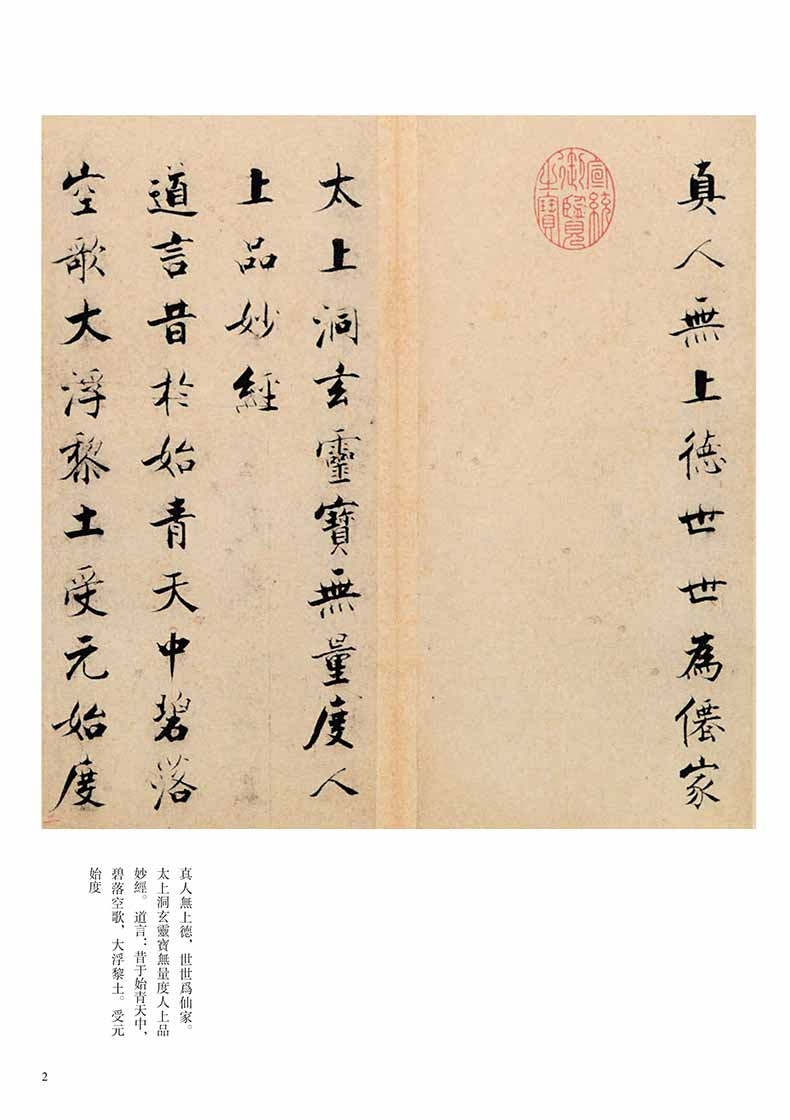 真人無上德世世為僊家
宣統御覽之寶
太上洞玄靈寶無量度人
上品妙經
道言昔於始青天中碧落
空歌大浮黎土受元始度
真人無上德，世世爲仙家。
太上洞玄靈寶無量度人上品
妙經。道言：昔于始青天中，
碧落空歌，大浮黎土。受元
始度
2